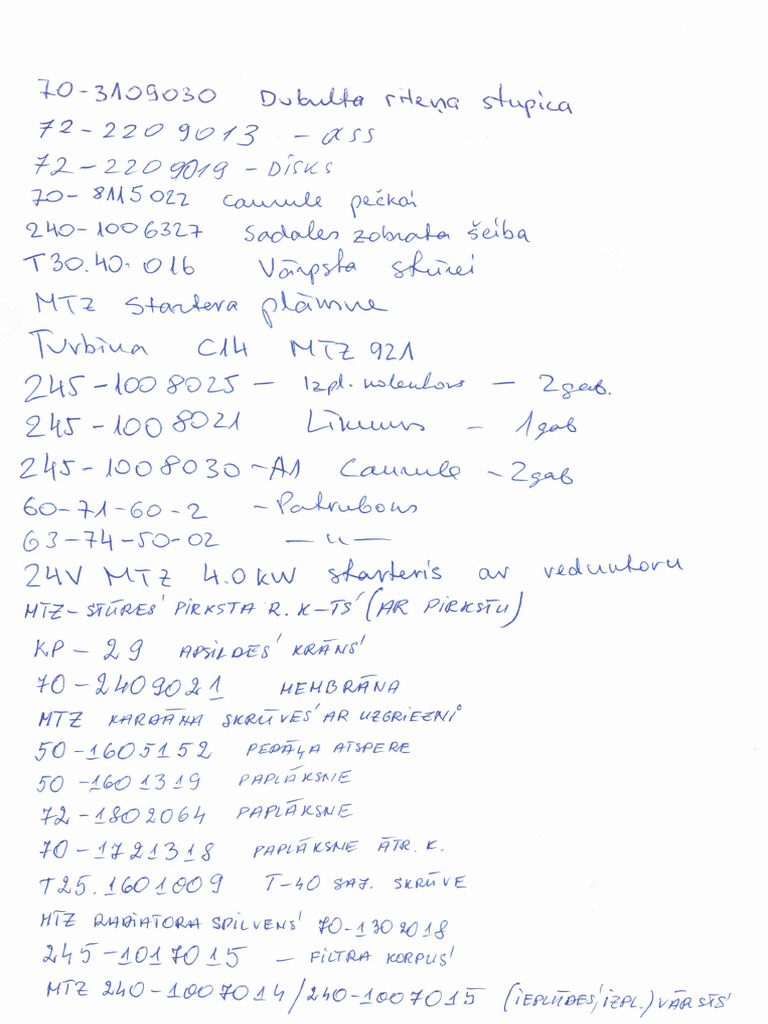 70-3109030 Dubulta riteņa stupica
72-2209013 - ass
72-2209019 - DISKS
70-8115022 caurule pečkai
240-1006327 sadales zobrata šeiba
T30.40.016 Vārpsta stūrei
MTZ startera plāksne
Turbīna C14 MTZ 921
245-1008025 - Izpl. kolektors - 2gab.
245-1008021 Līkums - 1gab
245-1008030-A1 Caurule - 2gab
60-71-60-2 - Patruboks
63-74-50-02 —"—
24V MTZ 4.0kW starteris ar reduktoru
MTZ-STŪRES PIRKSTA R. K-TS (AR PIRKSTU)
KP-29 APSILDES KRĀNS
70-2409021 MEMBRĀNA
MTZ KARDĀNA SKRŪVES AR UZGRIEZNI
50-1605152 PEDĀĻA ATSPERE
50-1601319 PAPLĀKSNE
72-1802064 PAPLĀKSNE
70-1721318 PAPLĀKSNE ĀTR. K.
T25.1601009 T-40 SAJ. SKRŪVE
MTZ RADIATORA SPILVENS 70-1302018
245-1017015 - FILTRA KORPUS
MTZ 240-1007014/240-1007015 (IEPLŪDES, IZPL.) VĀRSTS